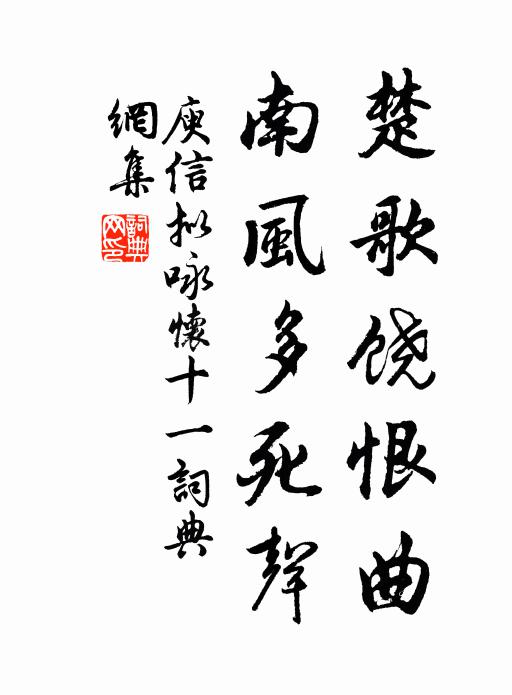 楚歌饶恨曲
南風多死聲
庾信拟咏懷十一詞典
網集
詞典网印